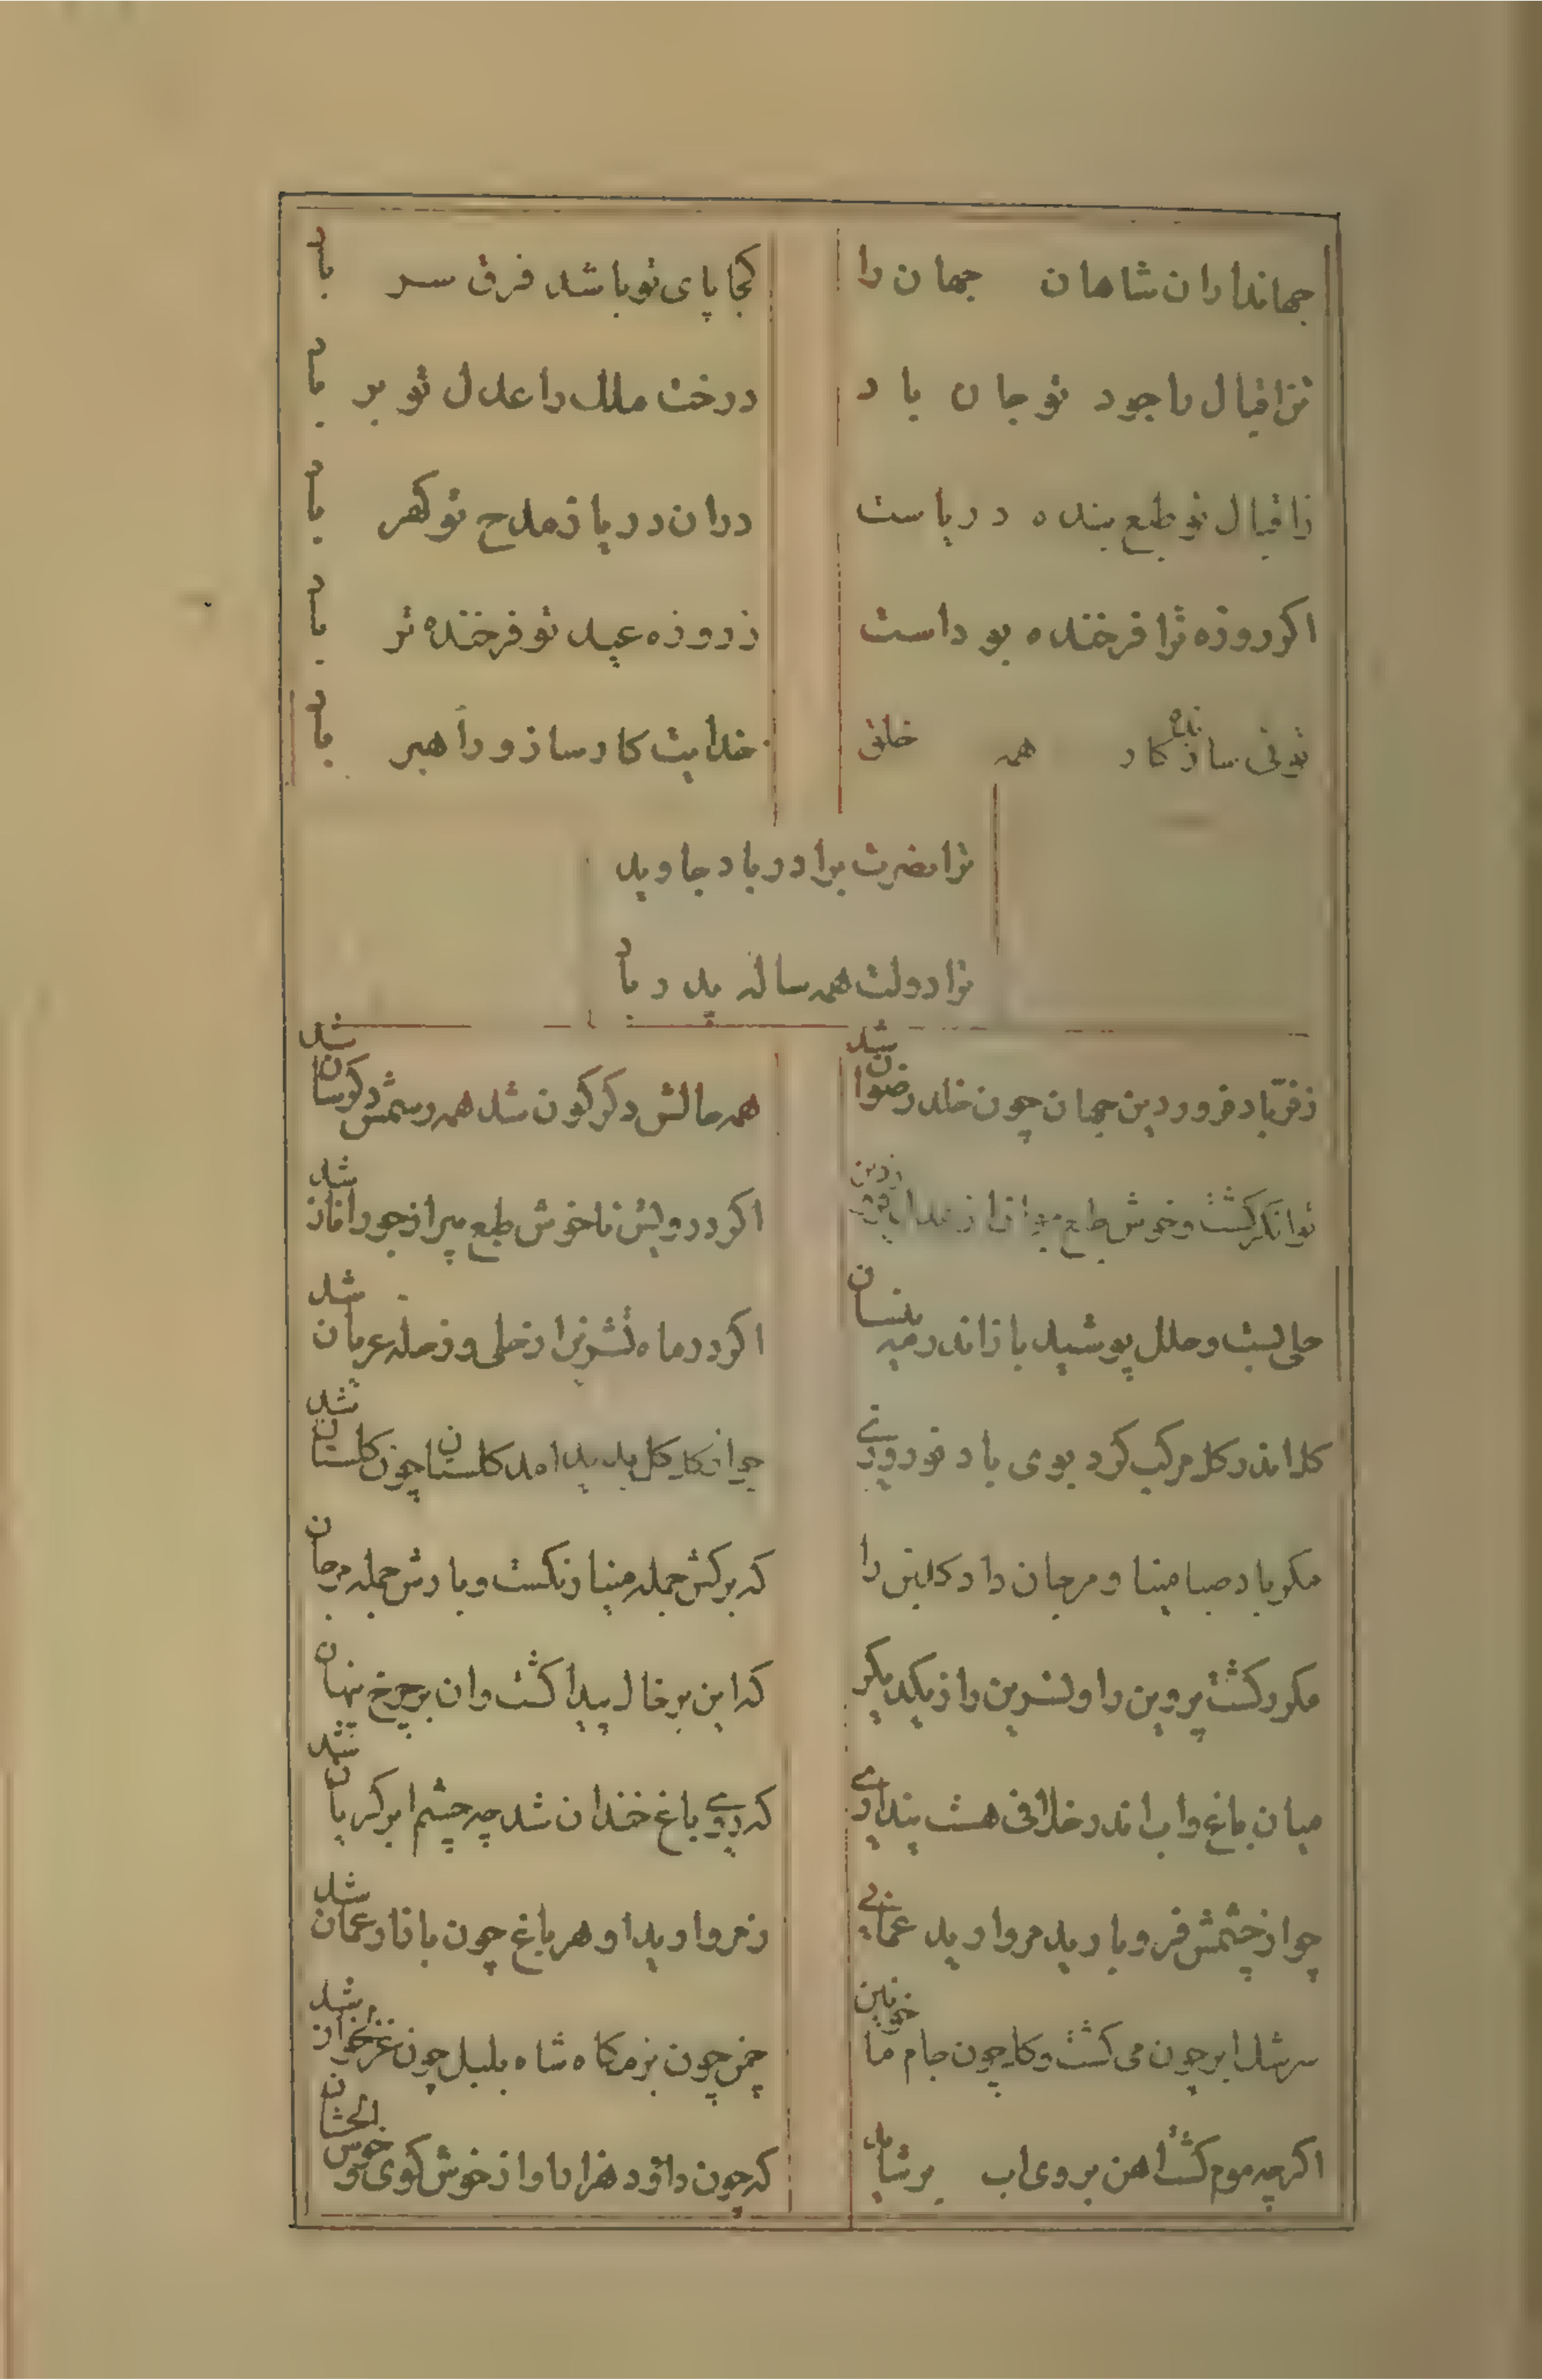 جهانداران شاهان جهان را کجا پای تو باشد فرق سر باد
تن اقبال را جود تو جان باد درخت ملک را عدل تو بر باد
زاقبال تو طبع بنده دریاست دران دریا زمدح تو کهر باد
اکر روزه ترا فرخنده بوداست زروزه عید تو فرخنده تر باد
توئی سازنده کار همه خلق خدایت کارساز و راهبر باد
ترا نصرت برادر باد جاوید
ترا دولت همه ساله پدر باد
زفرّ باد فروردین جهان چون خلد رضوان شد همه حالش دکرکون شد همه رسمش دکرسان شد
توانکر کشت و خوش طبع از فروردین اکر درویش ناخوش طبع پیر از جور ابان شد
حلی بست و حلل پوشید باز اندر مه نیسان اکر در ماه تشرین از حلی و ز حله عریان شد
کل اندر کل مرکب کرد بوی باد نوروزی چو از کل کل پدید امد کلستان چون کلستان شد
مکر باد صبا مینا و مرجان داد کلبن را که برکش جمله مینا رنکست و بارش جمله مرجان
مکر درکشت پروین را و نسرین را زیکدیکر که این بر خاک پیدا کشت وان بر چرخ پنهان شد
میان باغ و ابر اندر خلافی هست پنداری که روی باغ خندان شد چه چشم ابر کریان شد
چو از چشمش فرو بارید مروارید عمانی زمروارید او هر باغ چون بازار عمان شد
سرشک ابر چون می کشت و کل چون جام می خونین چمن چون بزمکاه شاه بلبل چون غزلخوان شد
اکرچه موم کشت اهن بروی اب برشاید که چون داود هزارآوا زخوش کوی و خوش الحان شد